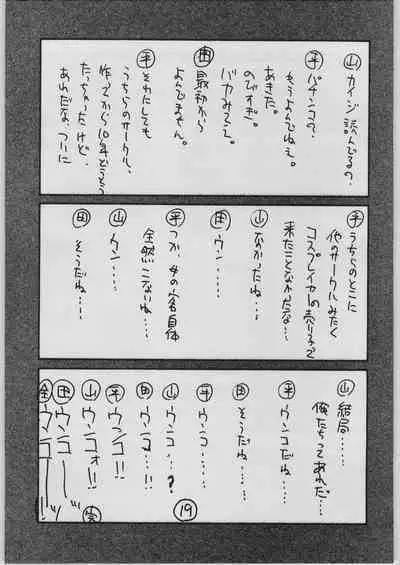 山 カイジ読んでるの、
平 パチンコの、
もうよんでねえ。
あきた。
のびすぎ。
バカみてえ。
田 最初から
よんでません。
平 それにしても
うちらのサークル、
作ってから10年
たっちゃったけど、
あれだな、ついに
平 うちらのとこに
他のサークルみたく
コスプレイヤーの売り子って
来たことなかったな…
山 なかったね…
田 ウン……
平 つか、女の客自体
全然こないね…
山 ウン……
田 そうだね…
山 結局……
俺たちってあれだ…
平 ウンコだね…
田 そうだね…
平 ウンコ……
山 ウンコ…?
田 ウンコ…!!
平 ウンコ!!
山 ウンコォ!!
田 ウンコ――ッ
全 ウンコ――ッ!!
完
19